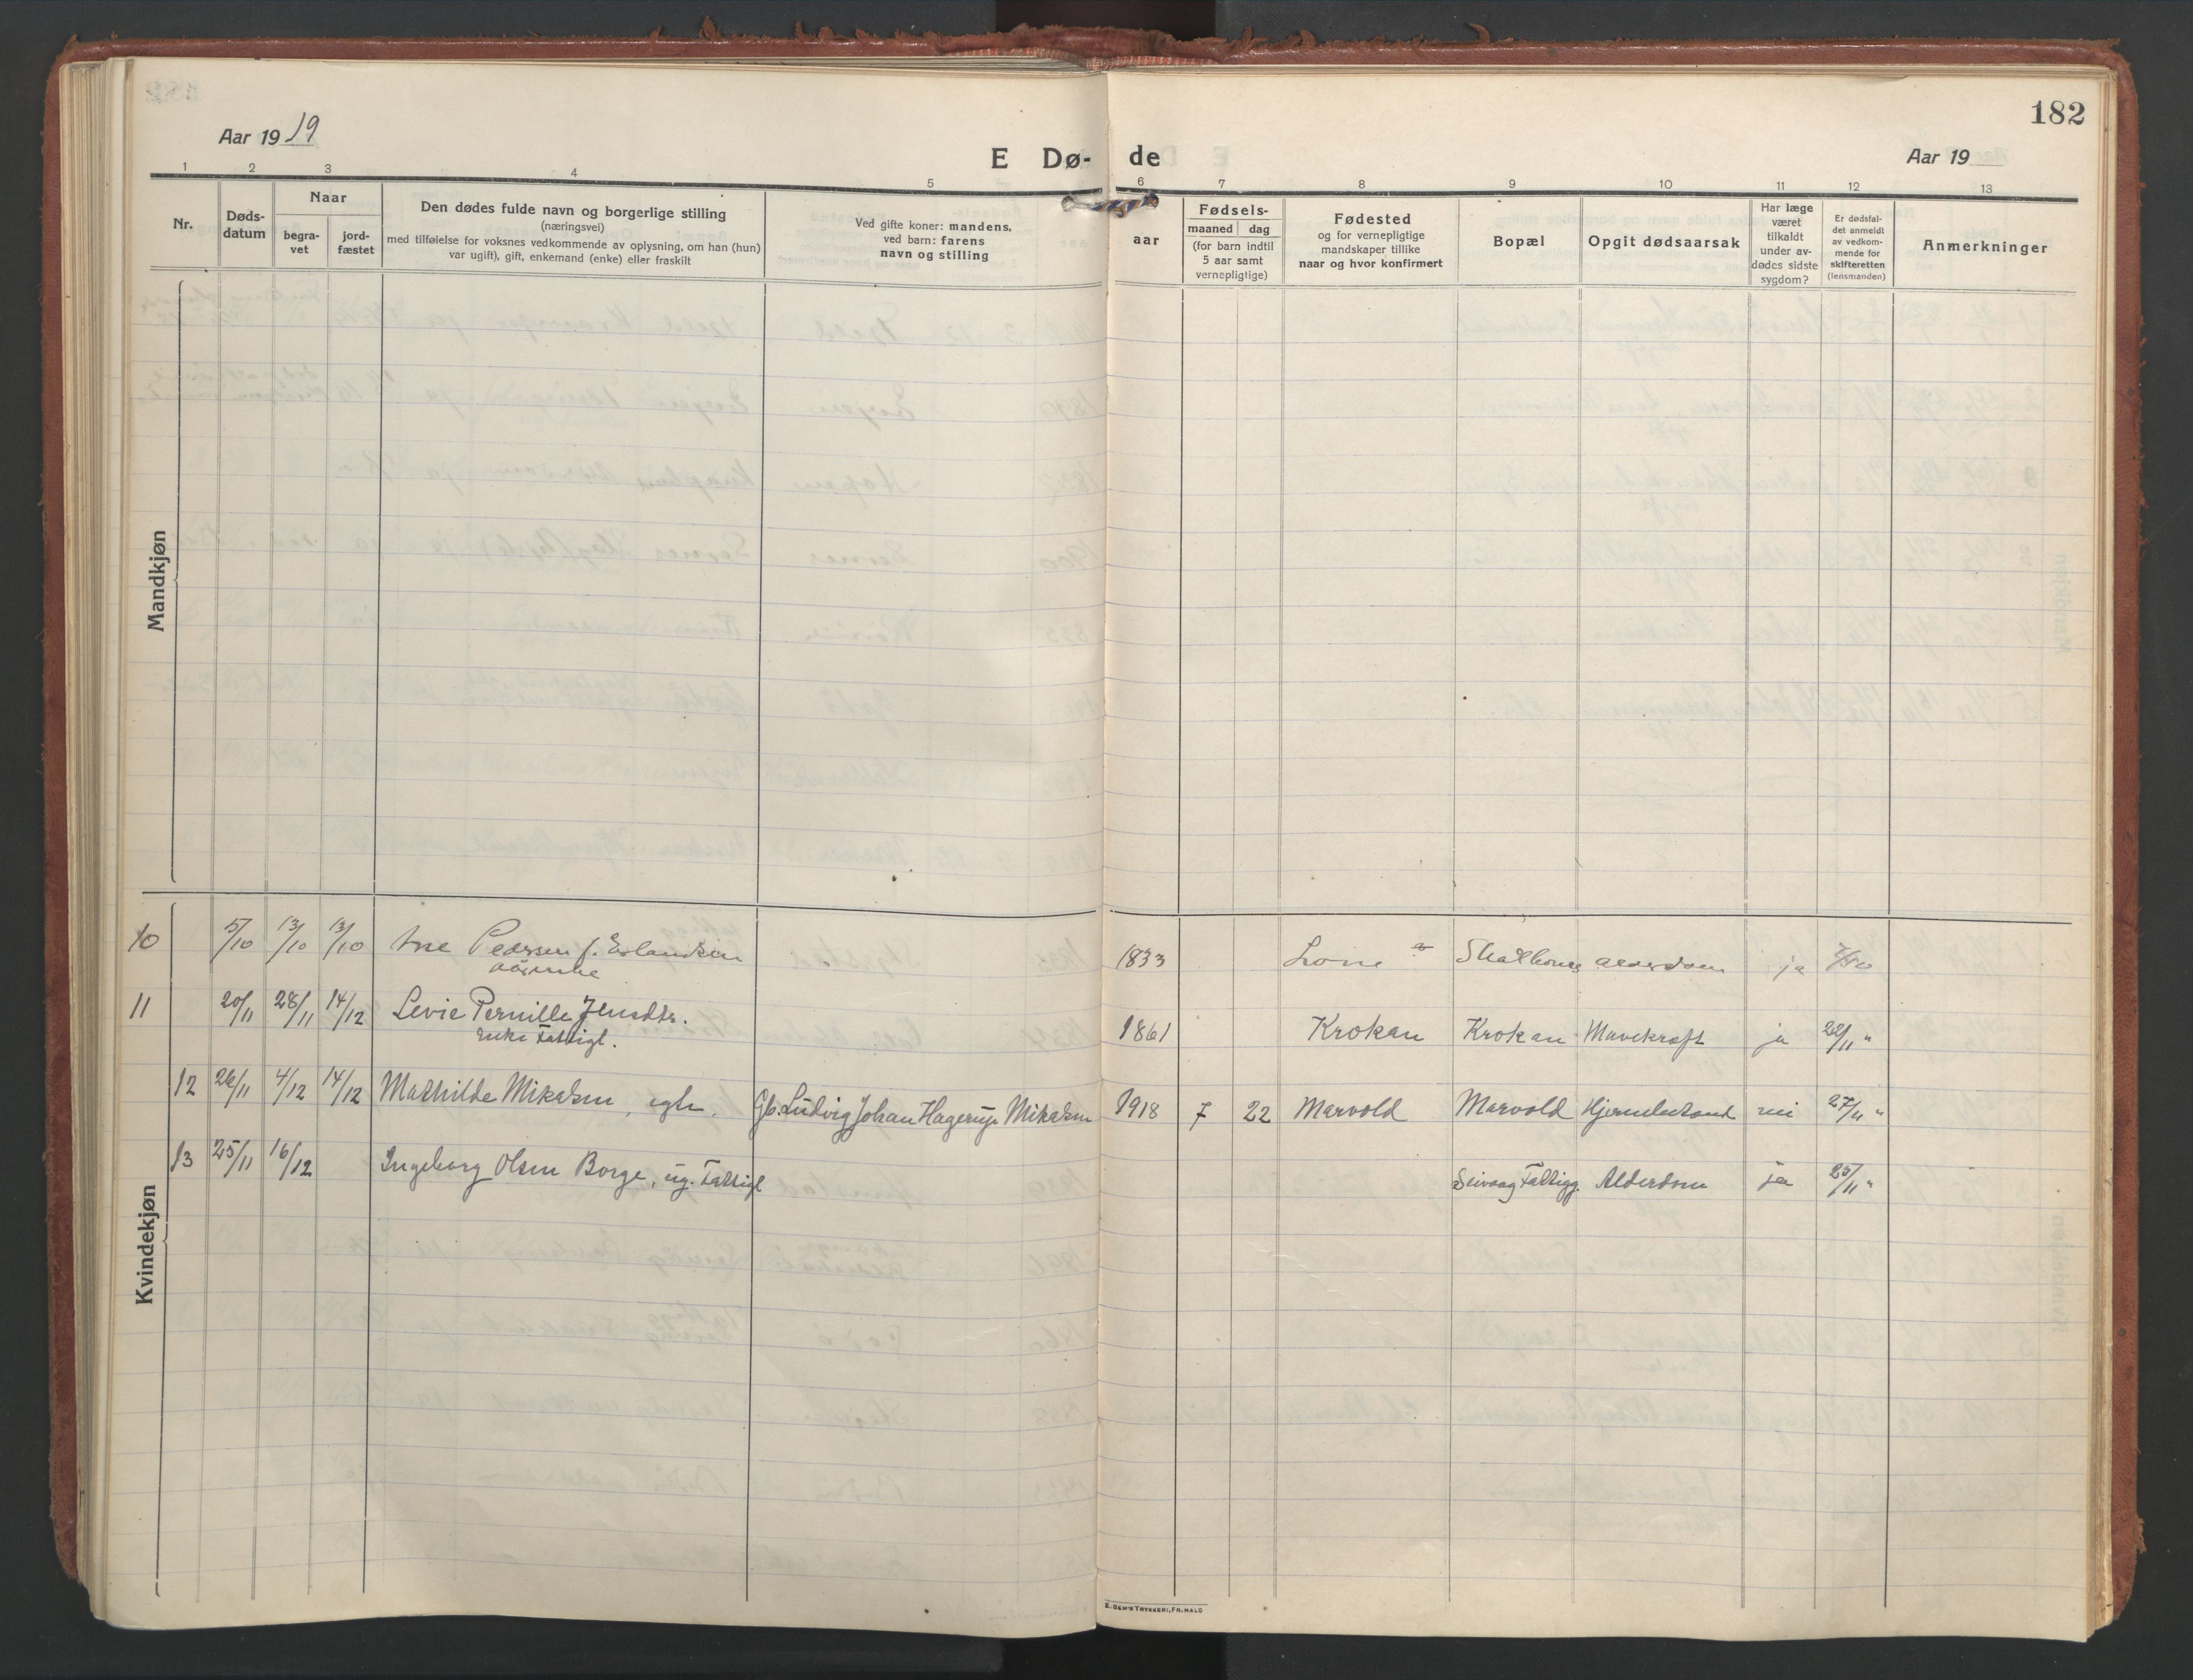 182
Aar 19 19
E Dø- de
Aar 19
1 2 3 4 5 6 7 8 9 10 11 12 13
Nr.
Døds-
datum
Naar
begra-
vet
jord-
fæstet
Den dødes fulde navn og borgerlige stilling
(næringsvei)
med tilføielse for voksnes vedkommende av oplysning, om han (hun)
var ugift), gift, enkemand (enke) eller fraskilt
Ved gifte koner: mandens,
ved barn: farens
navn og stilling
aar
Fødsels-
maaned dag
(for barn indtil
5 aar samt
vernepligtige)
Fødested
og for vernepligtige
mandskaper tillike
naar og hvor konfirmert
Bopæl
Opgit dødsaarsak
Har læge
været
tilkaldt
under av-
dødes sidste
sygdom?
Er dødsfal-
det anmeldt
av vedkom-
mende for
skifteretten
(lensmanden)
Anmerkninger
Mandkjøn
Kvindekjøn
10 5/10 13/10 13/10 Pedersen f. Erlandsen 1833 ja
11 20/11 28/11 14/12 Levie Pernille Jensdtr. 1861 Krokan Krokan Mavekræft ja 22/11 "
Enke Fattigl.
12 26/11 4/12 14/12 Mathilde Mikalsen, egte. Gb. Ludvig Johan Hagerup Mikalsen 1918 7 22 Marvold Marvold nei 27/11 "
13 25/11 16/12 Ingeborg Olsen Borge, ug. Fattigl Seivaag Fattigg. Alderdom ja 25/11 "
E. SEM'S TRYKKERI, FR.HALD